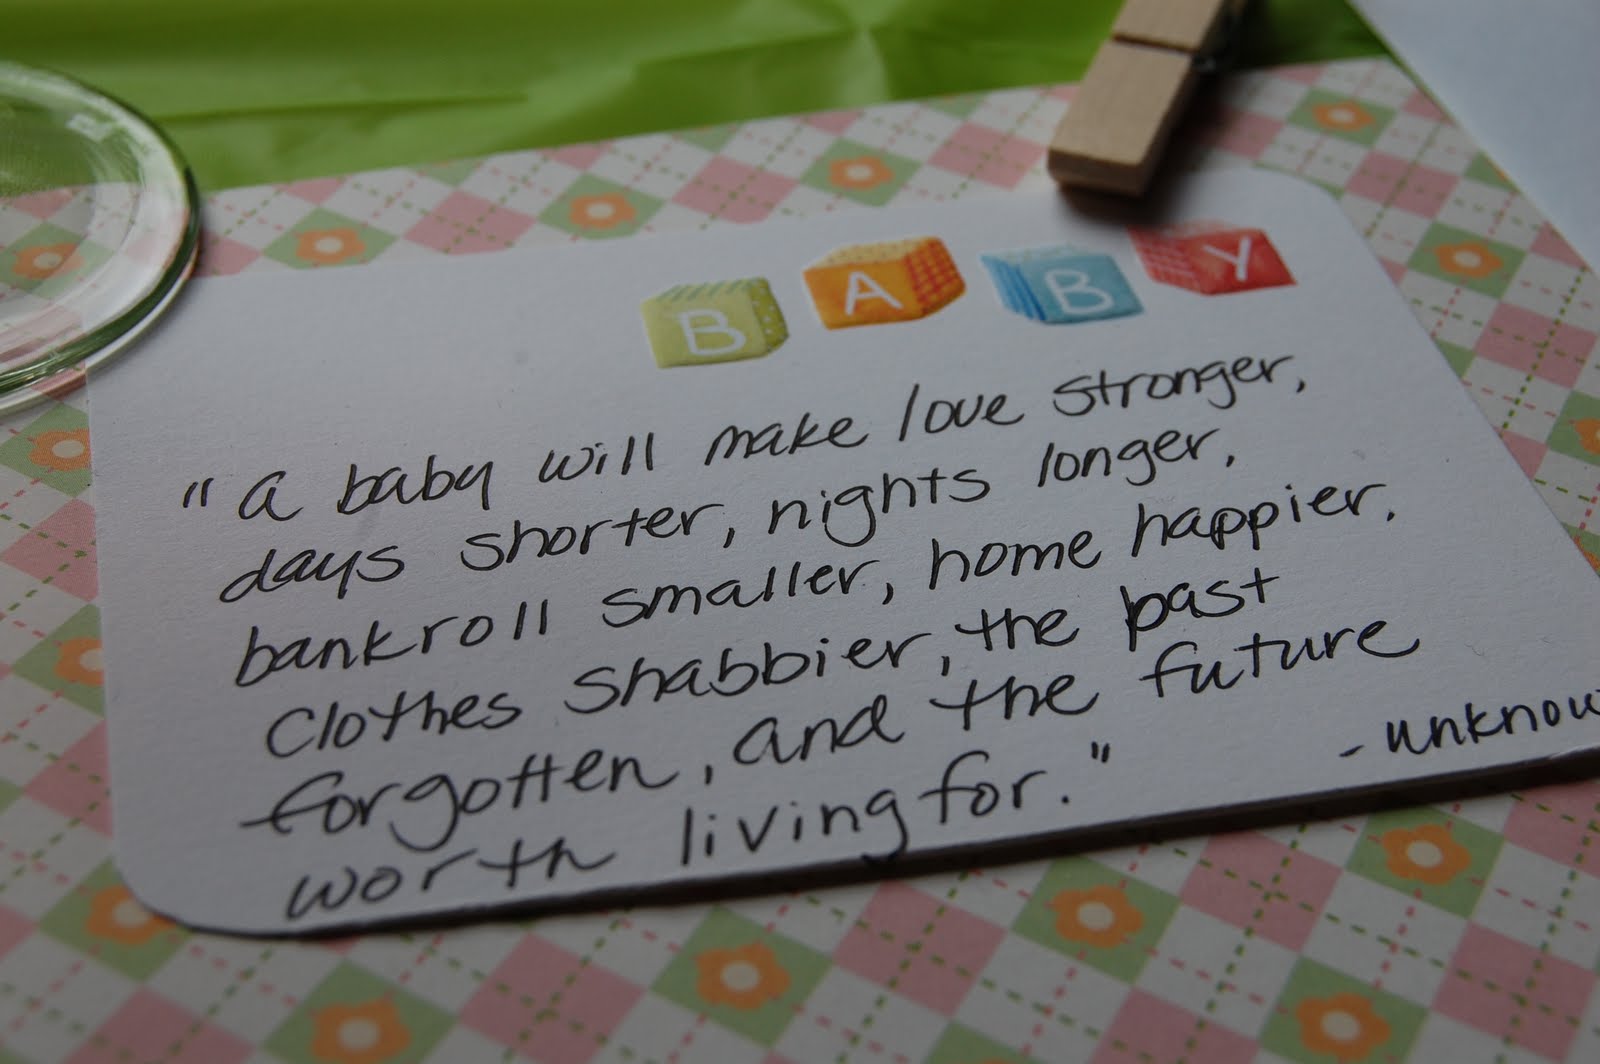 BABY
"a baby will make love stronger,
days shorter, nights longer,
bankroll smaller, home happier,
clothes shabbier, the past
forgotten, and the future
worth living for."
- unknow